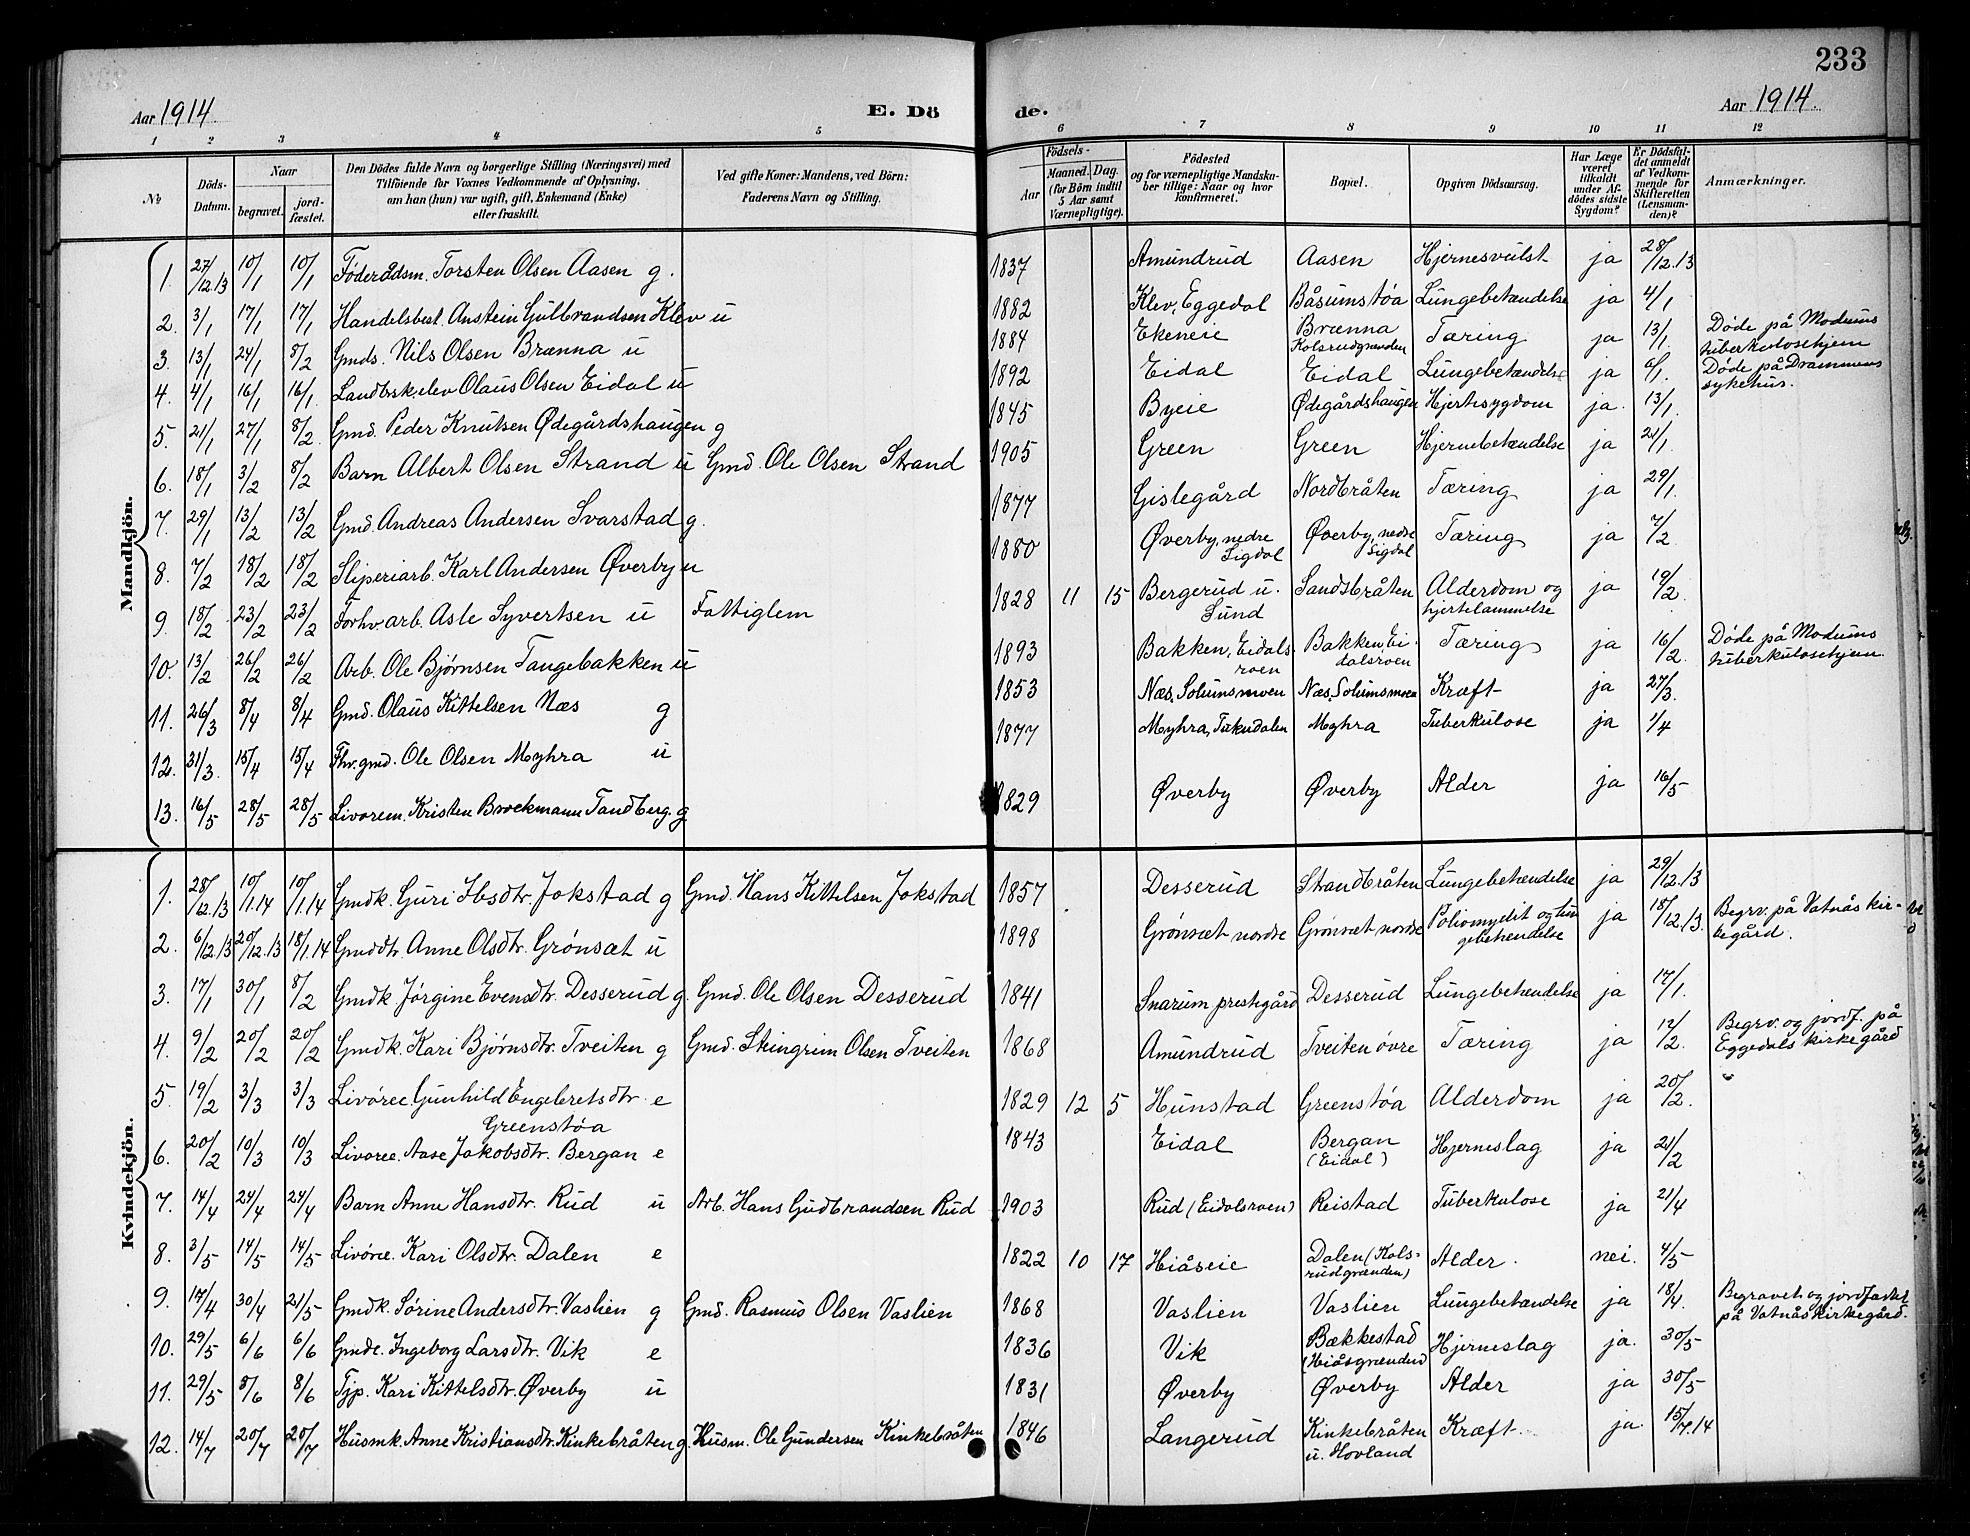 233
Aar 1914.
E. Dö
de.
Aar 1914.
1 2 3 4 5
6 7 8 9 10 11 12
№
Döds-Datum.
Naar
begravet.
jord-fæstet.
Den Dödes fulde Navn og borgerlige Stilling (Næringsvei) med
Tilföiende for Voxnes Vedkommende af Oplysning,
om han (hun) var ugift, gift, Enkemand (Enke)
eller fraskilt.
Ved gifte Koner: Mandens, ved Börn:
Faderens Navn og Stilling.
Födsels-
Aar
Maaned. Dag.
(for Börn indtil
5 Aar samt
Værnepligtige).
Födested
og for værnepligtige Mandska-
ber tillige: Naar og hvor
konfirmeret.
Bopæl.
Opgiven Dödsaarsag.
Har Læge
været
tilkaldt
under Af-
dödes sidste
Sygdom?
Er Dödsfal-
det anmeldt
af Vedkom-
mende for
Skifteretten
(Lensman-
den)?
Anmærkninger.
Mandkjön.
1. 27/12.13 10/1 10/1 Föderådsm. Torsten Olsen Aasen g. 1837 Amundrud Aasen Hjernesvulst ja 28/12.13
2. 3/1 17/1 17/1 Handelsbest. Anstein Gulbrandsen Klev u 1882 Klev, Eggedal Båsumstøa Lungebetændelse ja 4/1
3. 13/1 24/1 8/2 Gmds. Nils Olsen Brænna u 1884 Ekeneie Brænna Kolsrudgrænden Tæring ja 13/1. Døde på Modums tuberkulosehjem
4. 4/1 16/1 16/1 Landbrsk.elev Olaus Olsen Eidal u 1892 Eidal Eidal Lungebetændelse ja 6/1. Døde på Drammens sykehus.
5. 21/1 27/1 8/2. Gmd. Peder Knutsen Ødegårdshaugen g 1845 Byeie Ødegårdshaugen Hjertesygdom ja. 13/1.
6. 18/1 3/2 8/2 Barn Albert Olsen Strand u Gmd. Ole Olsen Strand 1905 Green Green Hjernebetændelse ja 21/1
7. 29/1 13/2 13/2 Gmd. Andreas Andersen Svarstad g. 1877 Gislegård Nordbråten Tæring ja 29/1.
8. 7/2 18/2 18/2 Sliperiarb. Karl Andersen Øverby u 1880 Øverby, nedre Sigdal Øverby, nedre Sigdal Tæring ja 7/2
9. 18/2 23/2 23/2 Forhv. arb. Asle Syvertsen u Fattiglem 1828 11 15 Bergerud u. Lund Sandsbråten Alderdom og hjertelammelse ja 19/2.
10. 13/2 26/2 26/2 Arb. Ole Bjørnsen Tangebakken u 1893 Bakken, Eidalsroen Bakken, Eidalsroen Tæring ja 16/2. Døde på Modums tuberkulosehjem.
11. 26/3 8/4 8/4 Gmd. Olaus Kittelsen Næs g 1853 Næs, Solumsmoen Næs, Solumsmoen Kræft ja 27/3.
12. 31/3. 15/4 15/4 Fhv. gmd. Ole Olsen Myhra u 1877 Myhra, Tukudalen Myhra Tuberkulose ja 1/4
13. 16/5 28/5 28/5 Livørem. Kristen Brockmann Tandberg. g 1829 Øverby Øverby Alder ja 16/5
Kvindekjön.
1. 28/12.13 10/1.14 10/1.14 Gmdk. Guri Ibsdtr. Jokstad g Gmd. Hans Kittelsen Jokstad 1857 Desserud Strandbråten Lungebetændelse ja 29/12.13
2. 6/12.13 20/12.13 18/1.14 Gmddtr. Anne Olsdtr. Grønsæt u 1898 Grønsæt nordre Grønsæt nordre Poliomydit og lungebetændelse ja 18/12.13. Begrv. på Vatnås kirkegård.
3. 17/1 30/1 8/2 Gmdk. Jørgine Evensdtr. Desserud g. Gmd. Ole Olsen Desserud 1841 Snarum prestegård Desserud Lungebetændelse ja 17/1.
4. 9/2 20/2 20/2 Gmdk. Kari Bjørnsdtr. Tveiten g Gmd. Steingrim Olsen Tveiten 1868 Amundrud Tveiten øvre Tæring ja 12/2. Begrv. og jordf. på Eggedals kirkegård
5. 19/2 3/3 3/3 Livøree. Gunhild Engebretsdtr. e Greenstøa 1829 12 5 Hunstad Greenstøa Alderdom ja 20/2.
6. 20/2 10/3 10/3 Livøree. Aase Jakobsdtr. Bergan e 1843 Eidal Bergan (Eidal) Hjerneslag ja 21/2
7. 14/4 24/4 24/4 Barn Anne Hansdtr. Rud u Arb. Hans Gudbrandsen Rud 1903 Rud (Eidalsroen) Reistad Tuberkulose ja 21/4
8. 3/5 14/5 14/5 Livøree. Kari Olsdtr. Dalen e 1822 10 17 Hiåseie Dalen (Kolsrudgrænden) Alder. nei. 4/5
9. 17/4 30/4 21/5 Gmdk. Sørine Andersdtr. Vaslien g Gmd. Rasmus Olsen Vaslien 1868 Vaslien Vaslien Lungebetændelse ja 18/4. Begravet og jordfæstet på Vatnås kirkegård.
10. 29/5 6/6 6/6 Gmde. Ingeborg Larsdtr. Vik e 1836 Vik Bækkestad (Hiåsgrænden) Hjerneslag ja. 30/5
11. 29/5 8/6 8/6 Tjp. Kari Kittelsdtr. Øverby u 1831 Øverby Øverby Alder ja 30/5
12. 14/7 20/7 20/7 Husmk. Anne Kristiansdtr. Kinkebråten g. Husm. Ole Gundersen Kinkebråten 1846 Langerud Kinkebråten u. Hovland Kræft. ja. 15/7.14